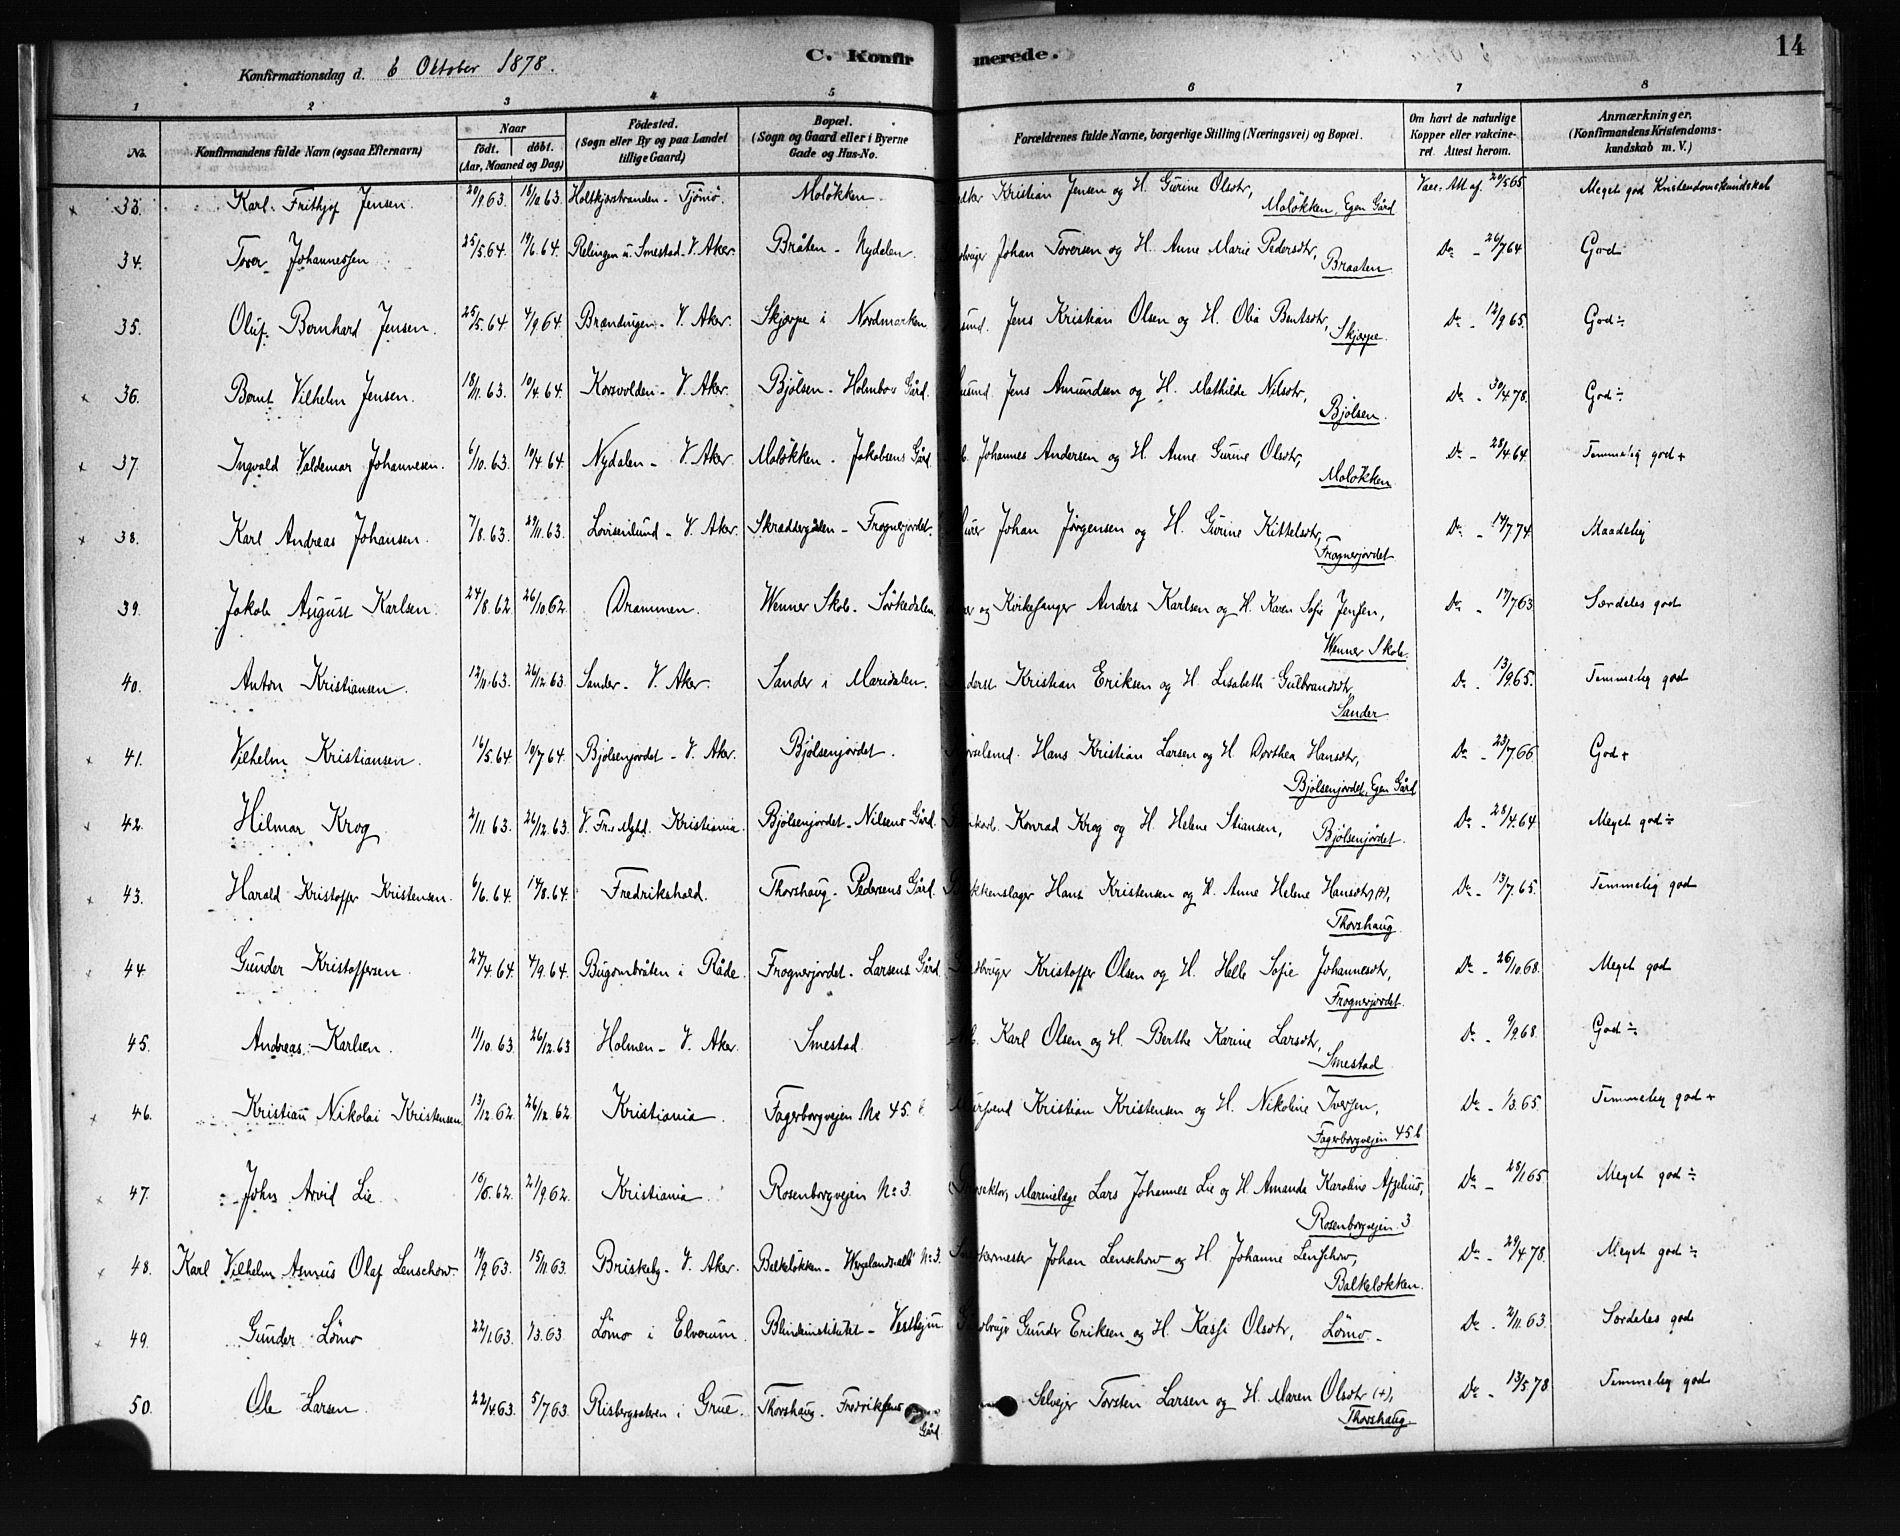 Konfirmationsdag d. 6 Oktober 1878.
C. Konfirmerede.
14
1 2 3 4 5 6 7 8
No. Konfirmandens fulde Navn (ogsaa Efternavn) Naar født. døbt. (Aar, Maaned og Dag) Fødested. (Sogn eller By og paa Landet tillige Gaard) Bopæl. (Sogn og Gaard eller i Byerne Gade og Hus-No. Forældrenes fulde Navne, borgerlige Stilling (Næringsvei) og Bopæl. Om havt de naturlige Kopper eller vaccineret. Attest herom. Anmærkninger. (Konfirmandens Kristendomskundskab m. V.)
33. Karl Frithjof Jensen 20/9.63. 18/10.63. Holtekjærstranden - Tjömö. Moløkken. Kristian Jensen og H. Gurine Olsdtr, Vacc. Att. af. 20/5 65 Meget god Kristendomskundskab
Moløkken, Egen Gård
34. Tover Johannessen 25/5.64. 19/6.64. Smestad - V. Aker. Bråten - Nydalen. Johan Toversen og H. Anne Marie Pedersdtr, Do - 26/7 64 God
Braaten
35. Oluf Bernhard Jensen. 25/5.64 4/9 64. Brændingen - V. Aker. Skjærpe i Nordmarken Jens Kristian Olsen og H. Olia Bentsdtr, Do - 12/9 65. God ÷
Skjærpe.
36. Bernt Vilhelm Jensen. 18/11.63. 10/4.64. Korsvolden - V. Aker. Bjølsen - Holmboes Gård. Jens Amundsen og H. Mathilde Nilsdtr, Do - 30/4 78. God ÷
Bjølsen.
37. Ingvald Valdemar Johannesen. 6/10.63. 10/4.64. Nydalen - V. Aker. Moløkken - Jakobsens Gård. Johannes Andersen og H. Anne Gurine Olsdtr, Do - 28/4 64. Temmelig god +
Moløkken
38. Karl Andreas Johansen. 7/8.63. 29/11.63. Lovisenlund - V. Aker. Skradderdalen - Frognerjordet. Johan Jörgensen og H. Gurine Kittelsdtr, Do - 14/7 74. Maadelig
Frognerjordet
39. Jakob August Karlsen. 24/8.62. 26/10 62. Drammen. Wenner Skole - Sørkedalen og Kirkesanger Anders Karlsen og H. Karen Sofie Jensen, Do - 17/7 63. Særdeles god
Wenner Skole.
40. Anton Kristiansen. 12/11.63. 26/12 63. Sander - V. Aker. Sander i Maridalen. Kristian Eriksen og H. Lisabeth Gulbrandsdtr, Do - 13/9 65. Temmelig god
Sander
41. Vilhelm Kristiansen. 16/5.64 10/7 64. Bjølsenjordet - V. Aker. Bjølsenjordet. Hans Kristian Larsen og H. Dorthea Hansdtr, Do - 23/7 66. God +
Bjølsenjordet, Egen Gård
42. Hilmar Krog 2/11 63. 26/12.63. Kristiania. Bjølsenjordet - Nilsens Gård. Konrad Krog og H. Helene Stiansen, Bjølsenjordet. Do - 28/4 64 Meget god ÷
43. Harald Kristoffer Kristensen. 6/6.64. 14/8.64. Fredrikshald. Thorshaug - Pedersens Gård. Hans Kristensen og H. Anne Helene Hansdtr (+), Do - 13/7.65. Temmelig god
Thorshaug
44. Gunder Kristoffersen. 24/4.64. 4/9.64. Bugombråten i Råde. Frognerjordet - Larsens Gård. Kristoffer Olsen og H. Helle Sofie Johannesdtr, Do - 26/10 68. Meget god
Frognerjordet.
45. Andreas Karlsen. 11/10.63. 26/12.63 Holmen - V. Aker. Smestad. Karl Olsen og H. Berthe Karine Larsdtr, Do - 9/9.68. God ÷
Smestad
46. Kristian Nikolai Kristensen. 13/12.62. 26/12 62. Kristiania. Fagerborgvejen No 45 b Kristian Kristensen og H. Nikoline Iversen, Do - 1/3 65. Temmelig god +
Fagerborgvejen 45 b
47. John Arvid Lie. 10/6.62. 21/9 62. Kristiania. Rosenborgvejen No 3. Prosektor, Marinelæge Lars Johannes Lie og H. Amanda Karoline Afzelius, Do - 28/1 65. Meget god ÷
Rosenborgvejen 3
48. Karl Vilhelm Asmus Olaf Lenschow. 19/9 63. 15/11 63. Briskeby - V. Aker. Balkeløkken - Wergelandsallé No 3. Johan Lenschow og H. Johanne Lenschow, Do - 29/4.78. Meget god ÷
Balkeløkken.
49. Gunder Lömo 22/1 63. 1/3.63. Lömo i Elverum. Blindeinstitutet - Vesthjem Gunder Eriksen og H. Kassi Olsdtr, Lömo. Do - 2/11 63. Særdeles god
50. Ole Larsen. 22/4 63. 5/7 63. Risbergsæteren i Grue. Thorshaug - Fredriksens Gård. Selvejer Torsten Larsen og H. Maren Olsdtr (+), Do - 13/5 78. Temmelig god
Thorshaug